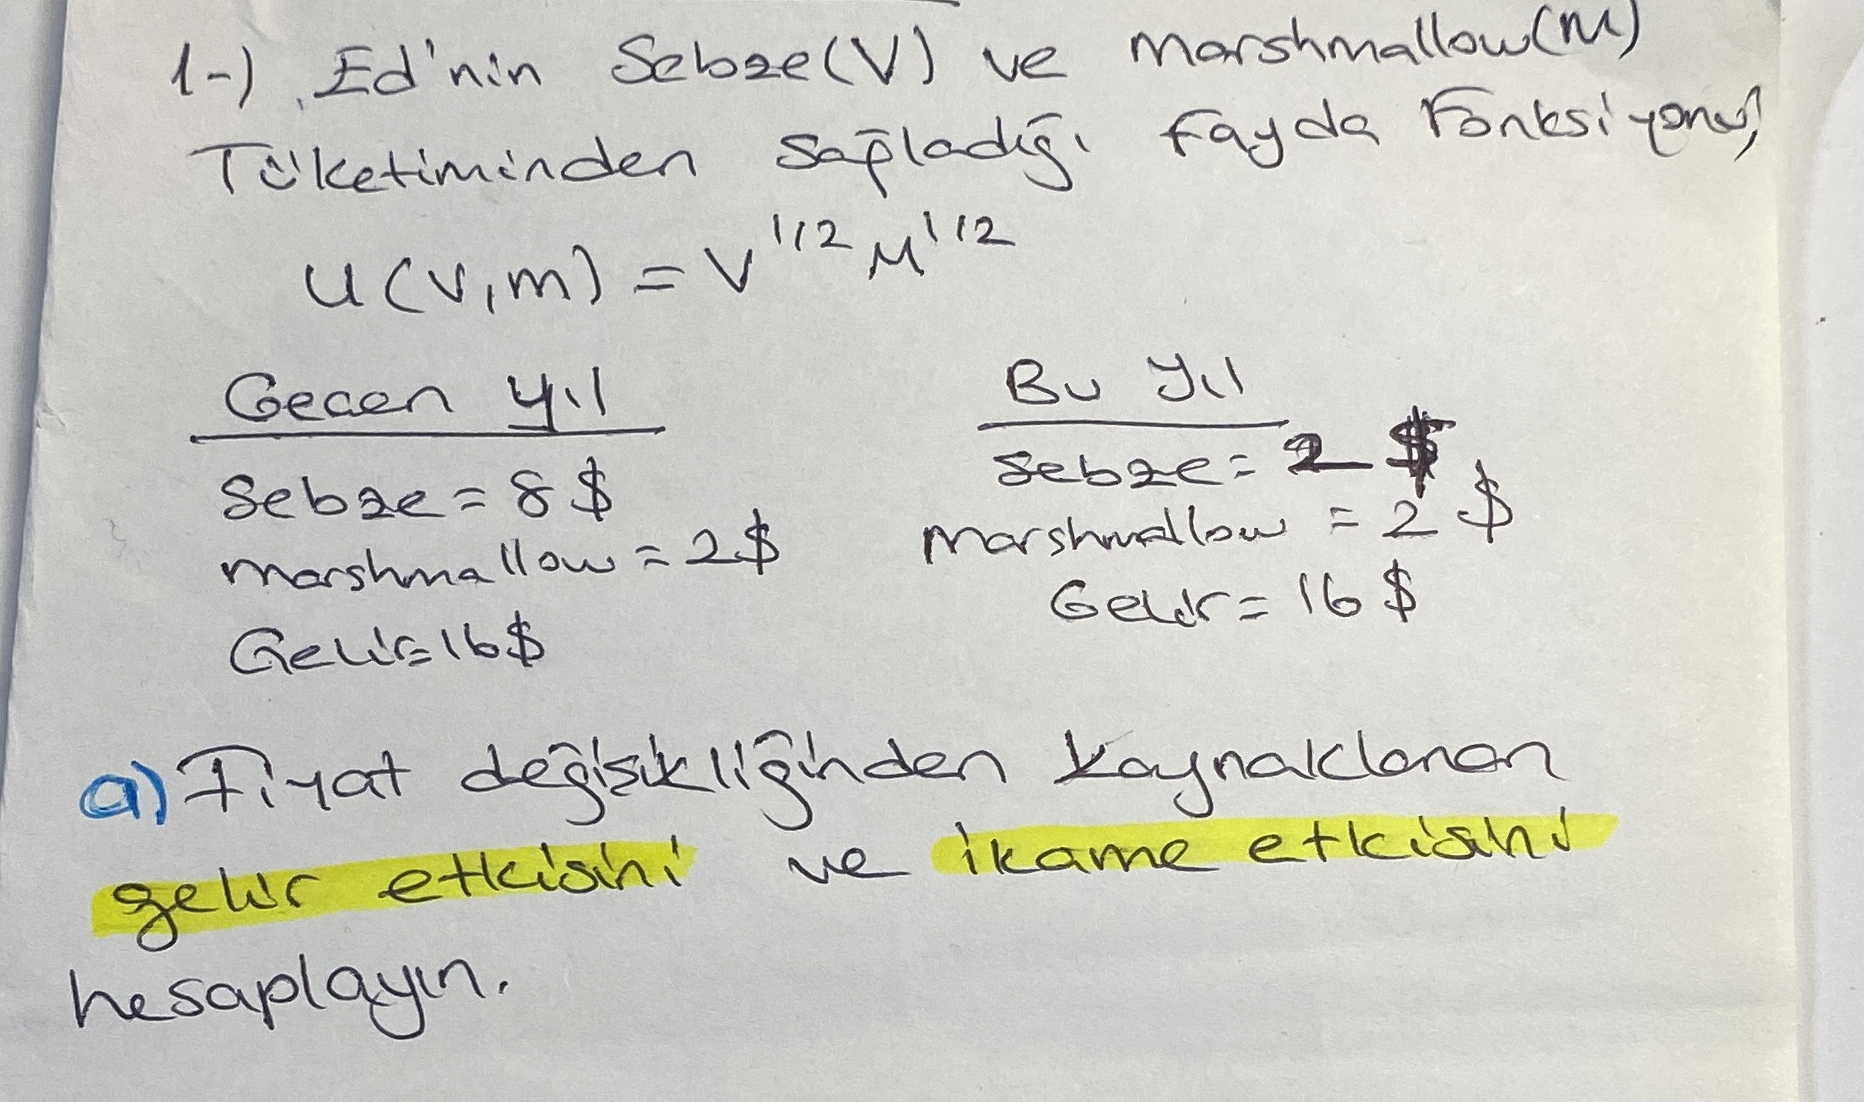 1-) Ed'nin Sebze(V) ve Marshmallow(M)
Tüketiminden sağladığı Fayda Fonksiyonu,
U(V,m) = V^1/2 M^1/2
Gecen yıl
Sebze = 8 $
Marshmallow = 2 $
Gelir = 16 $
Bu Yıl
Sebze = 2 $
Marshmallow = 2 $
Gelir = 16 $
a) Fiyat değişikliğinden kaynaklanan
gelir etkisini ve ikame etkisini
hesaplayın.